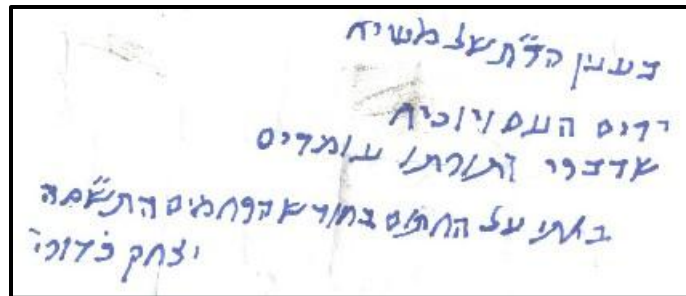 בענין הר״ת של משיח
ירים העם ויוכיח
שדברו ותורתו עומדים
באתי על החתום בחודש הרחמים התשס״ה
יצחק כדורי